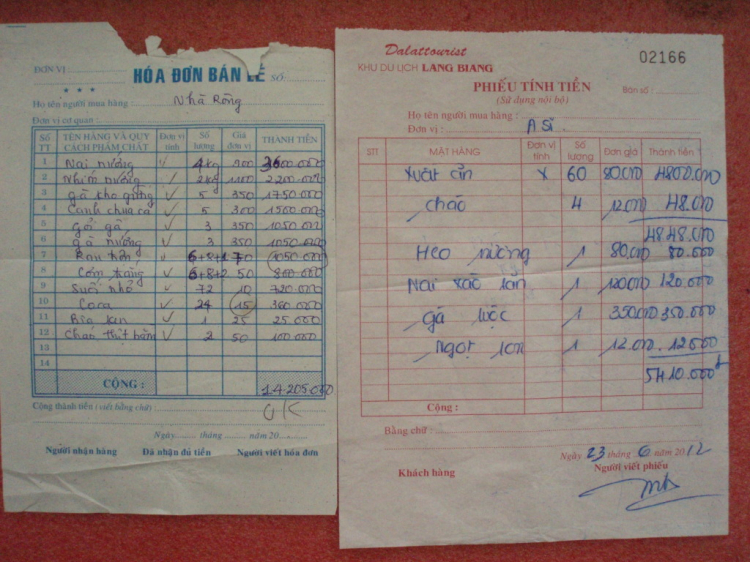 ĐƠN VỊ
HÓA ĐƠN BÁN LẺ SỐ
* * *
Họ tên người mua hàng : Nhà Rông
Đơn vị cơ quan :
Số TT TÊN HÀNG VÀ QUY CÁCH PHẨM CHẤT Đơn vị tính Số lượng Giá đơn vị THÀNH TIỀN
1 Nai nướng 4kg 900 3600.000
2 Nhím nướng 2kg 1100 2.200.000
3 gà kho gừng 5 350 1750.000
4 Canh chua cá 5 300 1500.000
5 gỏi gà 3 350 1050.000
6 gà nướng 3 350 1050.000
7 Rau 6+8+ 1050.000
8 Cơm trắng 6+8+2 50 800.000
9 Suối nhỏ 72 10 720.000
10 Coca 24 15 360.000
11 Bia lon 1 25 25.000
12 Cháo thịt bằm 2 50 100.000
13
14
CỘNG : 14.205.000
OK
Cộng thành tiền (viết bằng chữ)
Ngày tháng năm 20
Người nhận hàng Đã nhận đủ tiền Người viết hóa đơn
Dalattourist
KHU DU LỊCH LANG BIANG
02166
PHIẾU TÍNH TIỀN
(Sử dụng nội bộ)
Bàn số :
Họ tên người mua hàng :
Đơn vị : A Sĩ
STT MẶT HÀNG Đơn vị tính Số lượng Đơn giá Thành tiền
Xuất ăn X 60 80.000 4800.000
cháo 4 12.000 48.000
4848.000
Heo nướng 1 80.000 80.000
Nai xào lăn 1 120.000 120.000
gà luộc 1 350.000 350.000
Ngọt lon 1 12.000 12.000
5410.000
Cộng :
Bằng chữ :
Ngày 23 tháng 6 năm 2012
Khách hàng Người viết phiếu